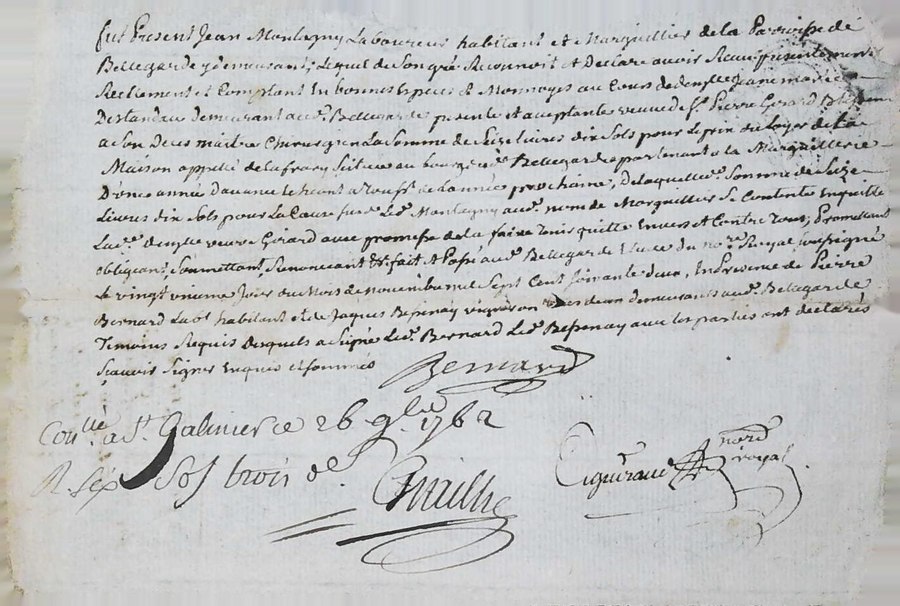 fut Present Jean Montagny Laboureur habitant et Marguillier de la Parroisse de
Bellegarde y demeurant, Lequel de Son gré Reconnoit et Declare avoir Receu presentement
Reellement et Comptant En bonnes Especes de Monnoyes au Cours de Jeanne marie
Destandau demeurant aud. Bellegarde presente et acceptante veuve de Sr. Pierre Girard
a Son Deces maitre Chirurgien La Somme de Seize livres dix Sols pour Le prix du Loyer de La
Maison appellé de Scituée au bourg dud. Bellegarde apartenant a la Marguillerie
D'une année davance de L'année prochaine, De laquelle d. Somme de Seize
Livres dix Sols pour La Cause Led. Montagny aud. nom de Marguillier Se Contente En quitte
Lad. veuve Girard avec promesse de La faire tenir quitte Envers et Contre tous, Promettant
obligeant, Soumettant, Renoncant &c. fait et Passé aud. Bellegarde Etude du nore. Royal soussigné
Le vingt unieme Jour du Mois de novembre mil Sept Cent Soixante deux, En Presence de Pierre
Bernard Labr. habitant et de Jaques Bessenay vigneron demeurants aud. Bellegarde
Temoins Requis Desquels a Signé Led. Bernard Led. Bessenay avec les parties ont declarés
sçavoir Signer Enquis et sommés
Bernard
Conllé a St. Galmier ce 26 9bre 1762
R. Six Sols trois d.
nore
royal